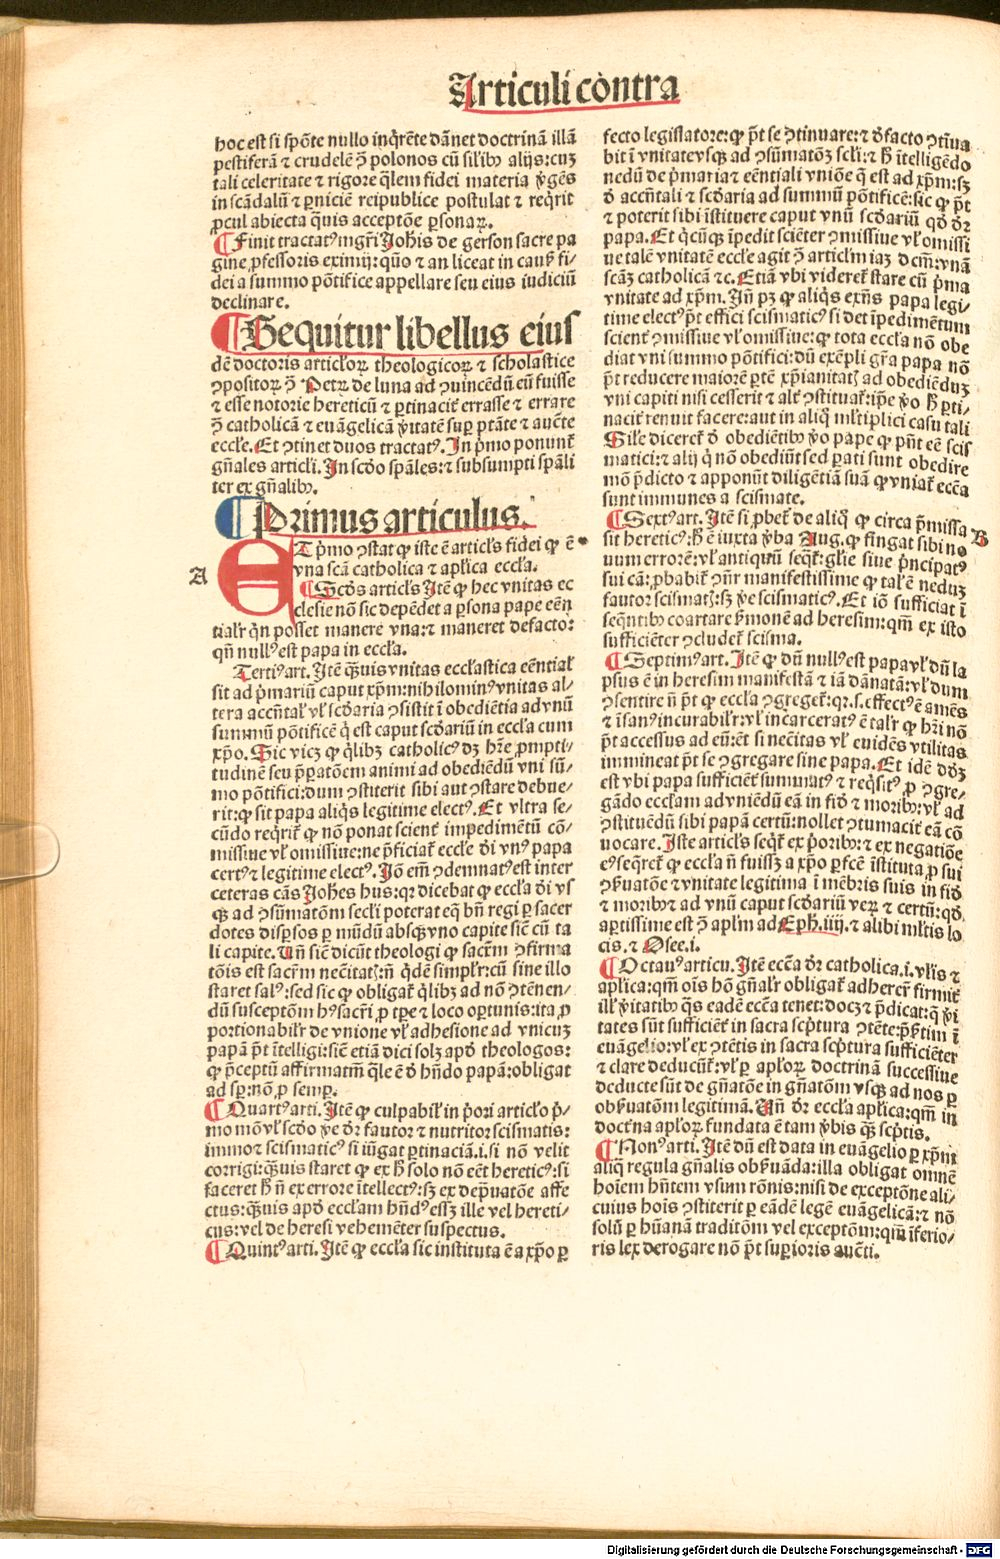 Articuli cōntra
hoc est si spōte nullo inq̄rēte dānet doctrinā illā
pestiferā ⁊ crudelē ꝯ̄ polonos cū silibꝰ alijs: cuȝ
tali celeritate ⁊ rigore q̄lem fidei materia v̓gēs
in scādalū ⁊ ꝑniciē reipublice postulat ⁊ req̄rit
ꝓcul abiecta q̄uis acceptōe ꝑsonaꝝ.
¶ Finit tractatꝰ mgr̄i Joh̄is de gerson sacre pa
gine ꝓfessoris eximij: quō ⁊ an liceat in causꝭ fi⸗
dei a summo pōtifice appellare seu eius iudiciū
declinare.
¶ Sequitur libellus eius
dē doctoris articl̓oꝝ theologicoꝝ ⁊ scholastice
ꝯpositoꝝ ꝯ̄ Petꝝ de luna ad ꝯuincēdū eū fuisse
⁊ esse notorie hereticū ⁊ ꝑtinacit̓ errasse ⁊ errare
ꝯ̄ catholicā ⁊ euāgelicā v̓itatē suꝑ ptāte ⁊ aucte
eccl̓e. Et ꝯtinet duos tractatꝰ. In p̓mo ponunt̓
gn̄ales articl̓i. In scd̓o spāles: ⁊ subsumpti spāli
ter ex gn̄alibꝰ.
¶ Primus articulus.
A
ET p̓mo ꝯstat ꝙ iste ē articl̓s fidei ꝙ ē
vna scā catholica ⁊ apl̓ica eccl̓a.
¶ Scd̓s articl̓s Itē ꝙ hec vnitas ec
clesie nō sic depēdet a ꝑsona pape eēn
tialr̓ q̓n posset manere vna: ⁊ maneret defacto:
qn̄ nullꝰ est papa in eccl̓a.
Tertiꝰ art. Itē q̄uis vnitas eccl̓astica eēntial̓
sit ad p̓mariū caput xp̄m: nihilominꝰ vnitas al⸗
tera accn̄tal̓ vl̓ scd̓aria ꝯsistit ī obediētia ad vnū
summū pōtificē q̓ est caput scd̓ariū in eccl̓a cum
xp̄o. Sic vicȝ ꝙ q̓libȝ catholicꝰ dȝ hr̄e ꝓmpti⸗
tudinē seu p̄ꝑatōem animi ad obediēdū vni sū⸗
mo pōtifici: dum ꝯstiterit sibi aut ꝯstare debue⸗
rit: ꝙ sit papa aliq̓s legitime electꝰ. Et vltra se⸗
cūdo req̄rit̓ ꝙ nō ponat scient̓ impedimētū cō⸗
missiue vl̓ omissiue: ne p̄ficiat̓ eccl̓e d̓i vnꝰ papa
certꝰ ⁊ legitime electꝰ. Jō em̄ ꝯdemnatꝰ est inter
ceteras cās Joh̄es hus: qꝛ dicebat ꝙ eccl̓a d̓i vs
qꝫ ad ꝯsūmatōm secl̓i poterat eq̄ bn̄ regi ꝑ sacer
dotes disꝑsos ꝑ mūdū absqꝫ vno capite sic̄ cū ta
li capite. Un̄ sic̄ dicūt theologi ꝙ sacr̄m ꝯfirma
tōis est sacr̄m necītatꝭ: n̄ q̓dē simplr̓: cū sine illo
staret salꝰ: sed sic ꝙ obligat̓ q̓libȝ ad nō ꝯtēnen⸗
dū susceptōm hꝰ sacr̄i ꝓ tꝑe ⁊ loco oꝑtunis: ita ꝓ
portionabilr̓ de vnione vl̓ adhesione ad vnicuȝ
papā p̄t ītelligi: sic̄ etiā dici solȝ apd̓ theologos:
ꝙ p̄ceptū affirmatm̄ q̄le ē d̓ hn̄do papā: obligat
ad sꝑ: nō ꝓ semꝑ.
¶ Quartꝰ arti. Itē ꝙ culpabil̓ in p̓ori articl̓o p̓⸗
mo mō vl̓ scd̓o v̓e dr̄ fautor ⁊ nutritor scismatis:
immo ⁊ scismaticꝰ si iūgat ꝑtinaciā. i. si nō velit
corrigi: q̄uis staret ꝙ ex h̓ solo nō eēt hereticꝰ: si
faceret h̓ n̄ ex errore ītellectꝰ: sȝ ex dep̄uatōe affe
ctus: q̄uis apd̓ eccl̓am hn̄dꝰ essȝ ille vel hereti⸗
cus: vel de heresi vehemēter suspectus.
¶ Quintꝰ arti. Itē ꝙ eccl̓a sic instituta ē a xp̄o ꝑ
fecto legislatore: ꝙ p̄t se ꝯtinuare: ⁊ d̓facto ꝯtīua
bit ī vnitate vsqꝫ ad ꝯsūmatōȝ secl̓i: ⁊ h̓ ītelligēdo
nedū de p̓maria ⁊ eēntiali vniōe q̄ est ad xp̄m: sȝ
d̓ accn̄tali ⁊ scd̓aria ad summū pōtificē: sic ꝙ p̄t
⁊ poterit sibi īstituere caput vnū scd̓ariū qd̓ dr̄
papa. Et q̓cūqꝫ īpedit sciēter ꝯmissiue vl̓ omissi
ue talē vnitatē eccl̓e agit ꝯ̄ articl̓m iaȝ dcm̄: vnā
scāȝ catholicā ⁊c. Etiā vbi videret̓ stare cū p̓ma
vnitate ad xp̄m. In̄ pȝ ꝙ aliq̓s exn̄s papa legi⸗
time electꝰ p̄t effici scismaticꝰ si det īpedimētum
scient̓ ꝯmissiue vl̓ omissiue: ꝙ tota eccl̓a nō obe
diat vni summo pōtifici: dū exēpli gr̄a papa nō
p̄t reducere maiorē ꝑtē xp̄ianitatꝭ ad obediēduȝ
vni capiti nisi cesserit ⁊ alt̓ ꝯstituat̓: ip̄e v̓o h̓ ꝑti⸗
nacit̓ renuit facere: aut in aliq̓ ml̓tiplici casu tali
Sil̓e diceret̓ d̓ obediētibꝰ v̓o pape ꝙ pn̄t eē scis
matici: ⁊ alij q̓ nō obediūt sed ꝑati sunt obedire
mō p̄dicto ⁊ apponūt diligētiā suā ꝙ vniat̓ eccā
sunt immunes a scismate.
B
¶ Sextꝰ art. Itē si ꝓbet̓ de aliq̓ ꝙ circa p̄missa
sit hereticꝰ: h̓ ē iuxta v̓ba Aug. ꝙ fingat sibi no
uum errorē: vl̓ antiquū seqt̓: gl̓ie siue p̓ncipatꝰ
sui cā: ꝓbabit̓ ꝯn̄r manifestissime ꝙ talē neduȝ
fautor scismatꝭ: sȝ v̓e scismaticꝰ. Et iō sufficiat ī
seq̄ntibꝰ coartare h̓monē ad heresim: qm̄ ex isto
sufficiēter ꝯcludet̓ scisma.
¶ Septimꝰ art. Itē ꝙ dū nullꝰ est papa vl̓ dū la
psus ē in heresim manifestā ⁊ iā dānatā: vl̓ dum
ꝯsentire n̄ p̄t ꝙ eccl̓a ꝯgreget̓: qꝛ. s. effectꝰ ē amēs
⁊ īsanꝰ incurabilr̓: vl̓ incarceratꝰ ē talr̓ ꝙ hr̄i nō
p̄t accessus ad eū: ēt si necītas vl̓ euidēs vtilitas
immineat p̄t se ꝯgregare sine papa. Et idē d̓ōȝ
est vbi papa sufficiēt̓ summatꝰ ⁊ req̄sitꝰ ꝓ ꝯgre⸗
gādo eccl̓am ad vniēdū eā in fid̓ ⁊ moribꝰ: vl̓ ad
ꝯstituēdū sibi papā certū: nollet ꝯtumacit̓ eā cō
uocare. Iste articl̓s seqt̓ ex p̓oribꝰ: ⁊ ex negatiōe
eꝰ seqret̓ ꝙ eccl̓a n̄ fuissȝ a xp̄o ꝑfcē īstituta ꝓ sui
ꝯseruatōe ⁊ vnitate legitima ī mēbris suis in fid̓
⁊ moribꝰ ⁊ ad vnū caput scd̓ariū veꝝ ⁊ certū: qd̓
aꝑtissime est ꝯ̄ apl̓m ad Eph. iiij. ⁊ alibi ml̓tis lo
cis. ⁊ Osee. i.
¶ Octauꝰ articu. Itē eccā dr̄ catholica. i. vl̓is ⁊
apl̓ica: qm̄ oīs hō gn̄alr̓ obligat̓ adherer̓ firmit̓
ill̓ v̓itatibꝰ q̄s eadē eccā tenet: docȝ ⁊ p̄dicat: q̄ v̓i
tates sūt sufficiēt̓ in sacra scp̓tura ꝯtēte: p̄sertim ī
euāgelio: vl̓ ex ꝯtētis in sacra scp̓tura sufficiēter
⁊ clare deducūt̓: vl̓ ꝑ apl̓oꝝ doctrinā successiue
deducte sūt de gn̄atōe in gn̄atōm vsqꝫ ad nos ꝑ
obseruatōm legitimā. Un̄ dr̄ eccl̓a apl̓ica: qm̄ in
doct̓na apl̓oꝝ fundata ē tam v̓bis q̄ꝫ scp̓tis.
¶ Nonꝰ arti. Itē dū est data in euāgelio ꝑ xp̄m
aliq̓ regula gn̄alis obseruāda: illa obligat omnē
hoīem hn̄tem vsum rōnis: nisi de exceptōne ali⸗
cuius hois ꝯstiterit ꝑ eādē legē euāgelicā: ⁊ nō
solū ꝑ hūanā traditōm vel exceptōm: qm̄ īferio⸗
ris lex derogare nō p̄t suꝑioris aucti.
Digitalisierung gefördert durch die Deutsche Forschungsgemeinschaft - DFG